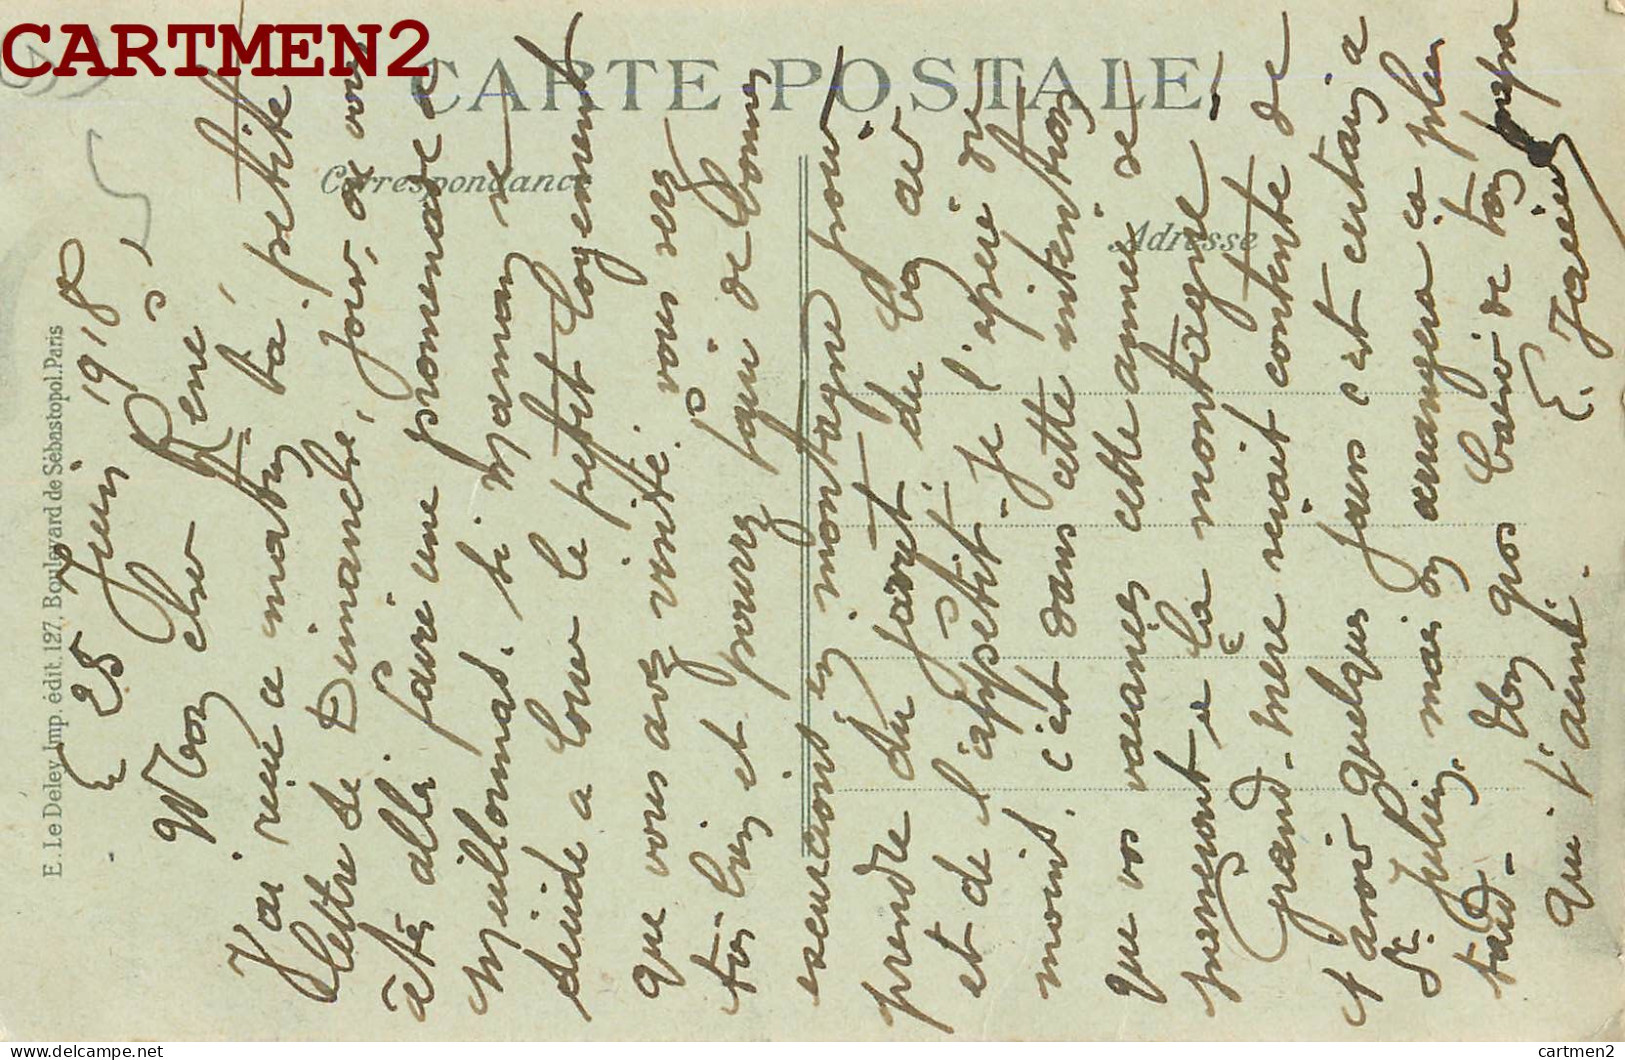 CARTMEN2
CARTE POSTALE
Correspondance
Adresse
E. Le Deley, Imp. édit. 127, Boulevard de Sébastopol. Paris
25 Juin 1918,
Mon cher René,
J'ai reçu ce matin ta petite
lettre de Dimanche, jour, où vous
êtes allé faire une promenade à
Maman se
décide a louer le petit logement
que vous avez visité. vous serez
très bien et pourrez faire de bonnes
excursions en montagne pour
prendre du jarret, du bon air
et de l'appétit. Je l'espère du
moins, c'est dans cette intention
que vos vacances cette année se
passeront à la montagne.
Grand-mère serait contente de
t'avoir quelques jours c'est certain, à
St. Julien, mais on arrangera ça plus
tard. Un gros baiser de ton papa
qui t'aime.
E. Janin
cartmen2.com
cartmen2